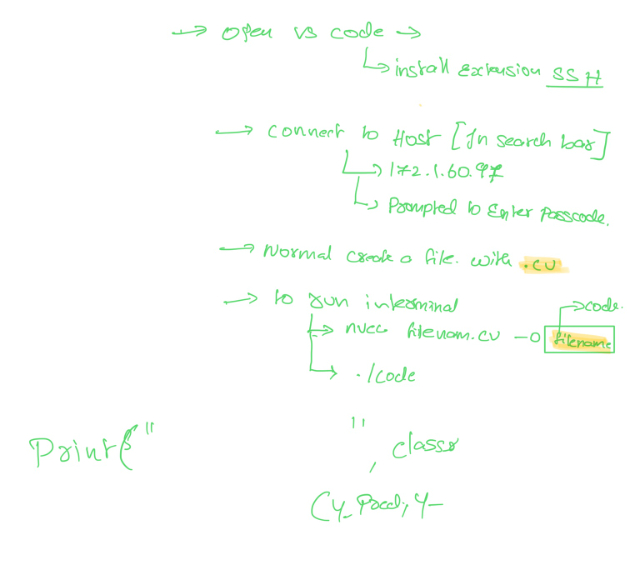 → Open vs code →
↳ install Extension SSH
→ Connect to Host [In search bar]
↳ 172.1.60.97
↳ Prompted to Enter Passcode.
→ Normal create a file. with .cu
→ to run interminal
→ nvcc filenam.cu -o filename → code.
→ ./code
Printf" ", classr
(y_Pred, y_